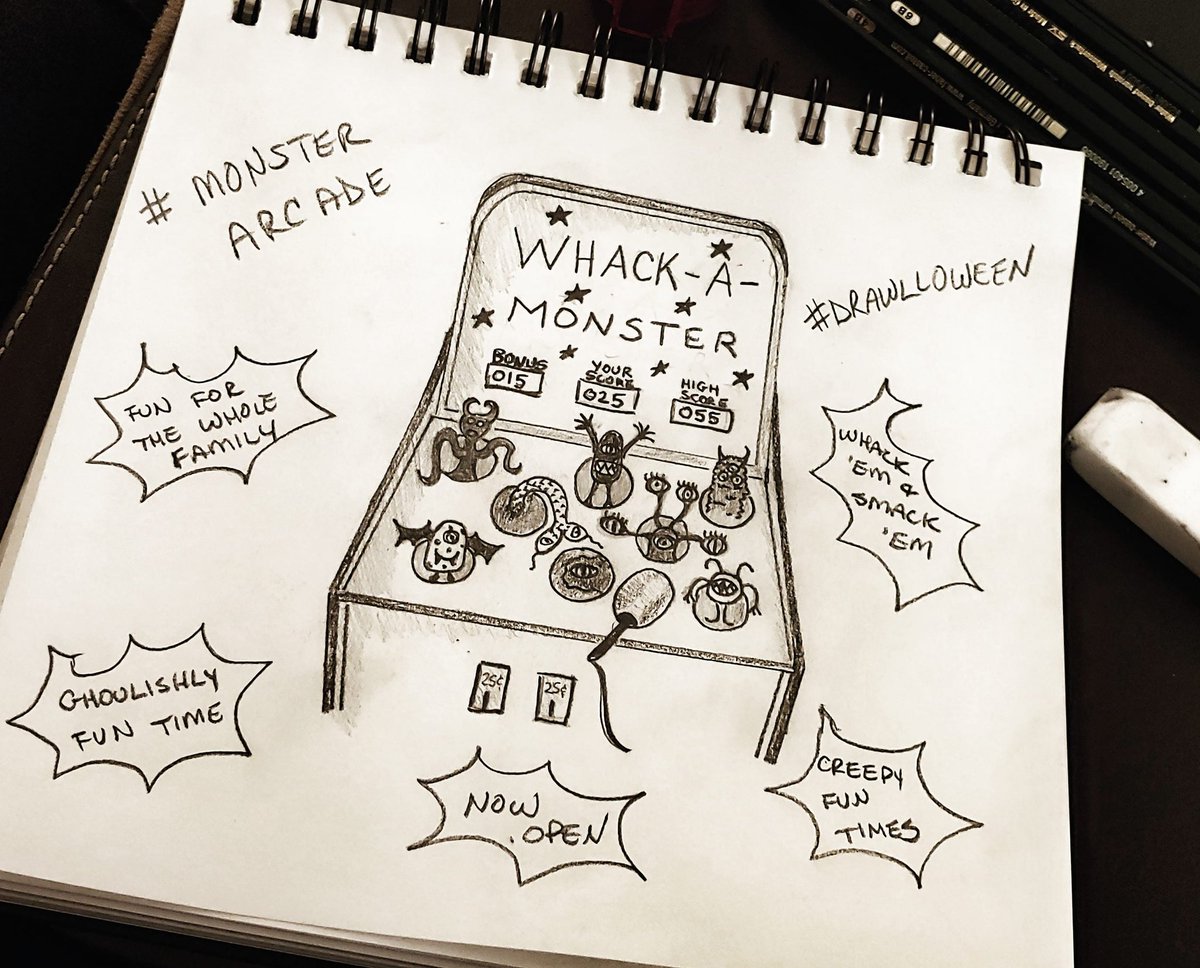 # MONSTER
ARCADE
#DRAWLLOWEEN
WHACK-A-
MONSTER
BONUS
015
YOUR
SCORE
025
HIGH
SCORE
055
FUN FOR
THE WHOLE
FAMILY
WHACK
'EM &
SMACK
'EM
GHOULISHLY
FUN TIME
25¢
25¢
NOW
OPEN
CREEPY
FUN
TIMES
6B